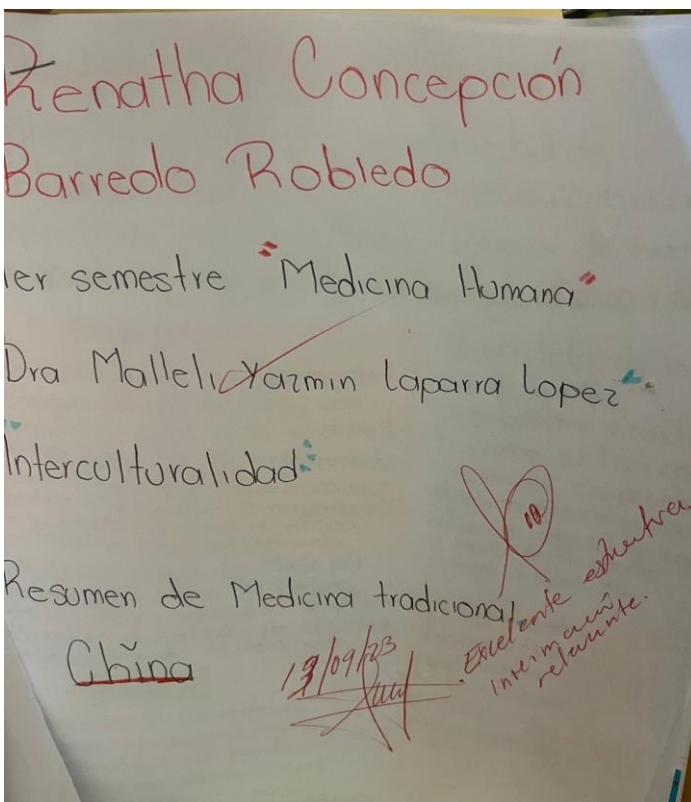 Renatha Concepción
Barredo Robledo
1er semestre "Medicina Humana"
Dra Malleli Yazmin Laparra Lopez
"Interculturalidad"
Resumen de Medicina tradicional
China
10
/09/23
Excelente estructura
información
relevante.